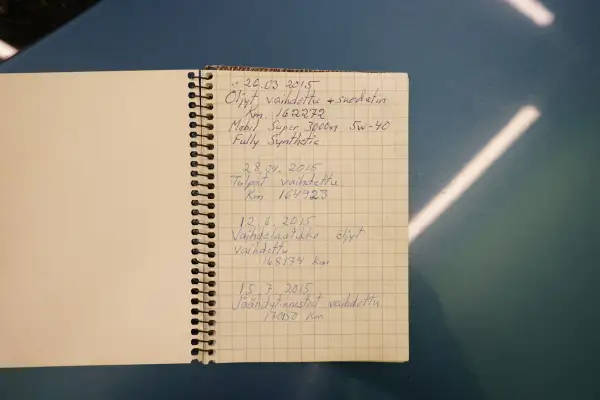 20.03 2015
Öljyt vaihdettu + suodatin
Km 162272
Mobil Super 3000 5w-40
Fully Synthetic
28.04.2015
Tulpat vaihdettu
Km 164923
12.6.2015
Vaihdelaatikko öljyt
vaihdettu
168134 km
15.7.2015
Jäähdytinnesteet vaihdettu
Km